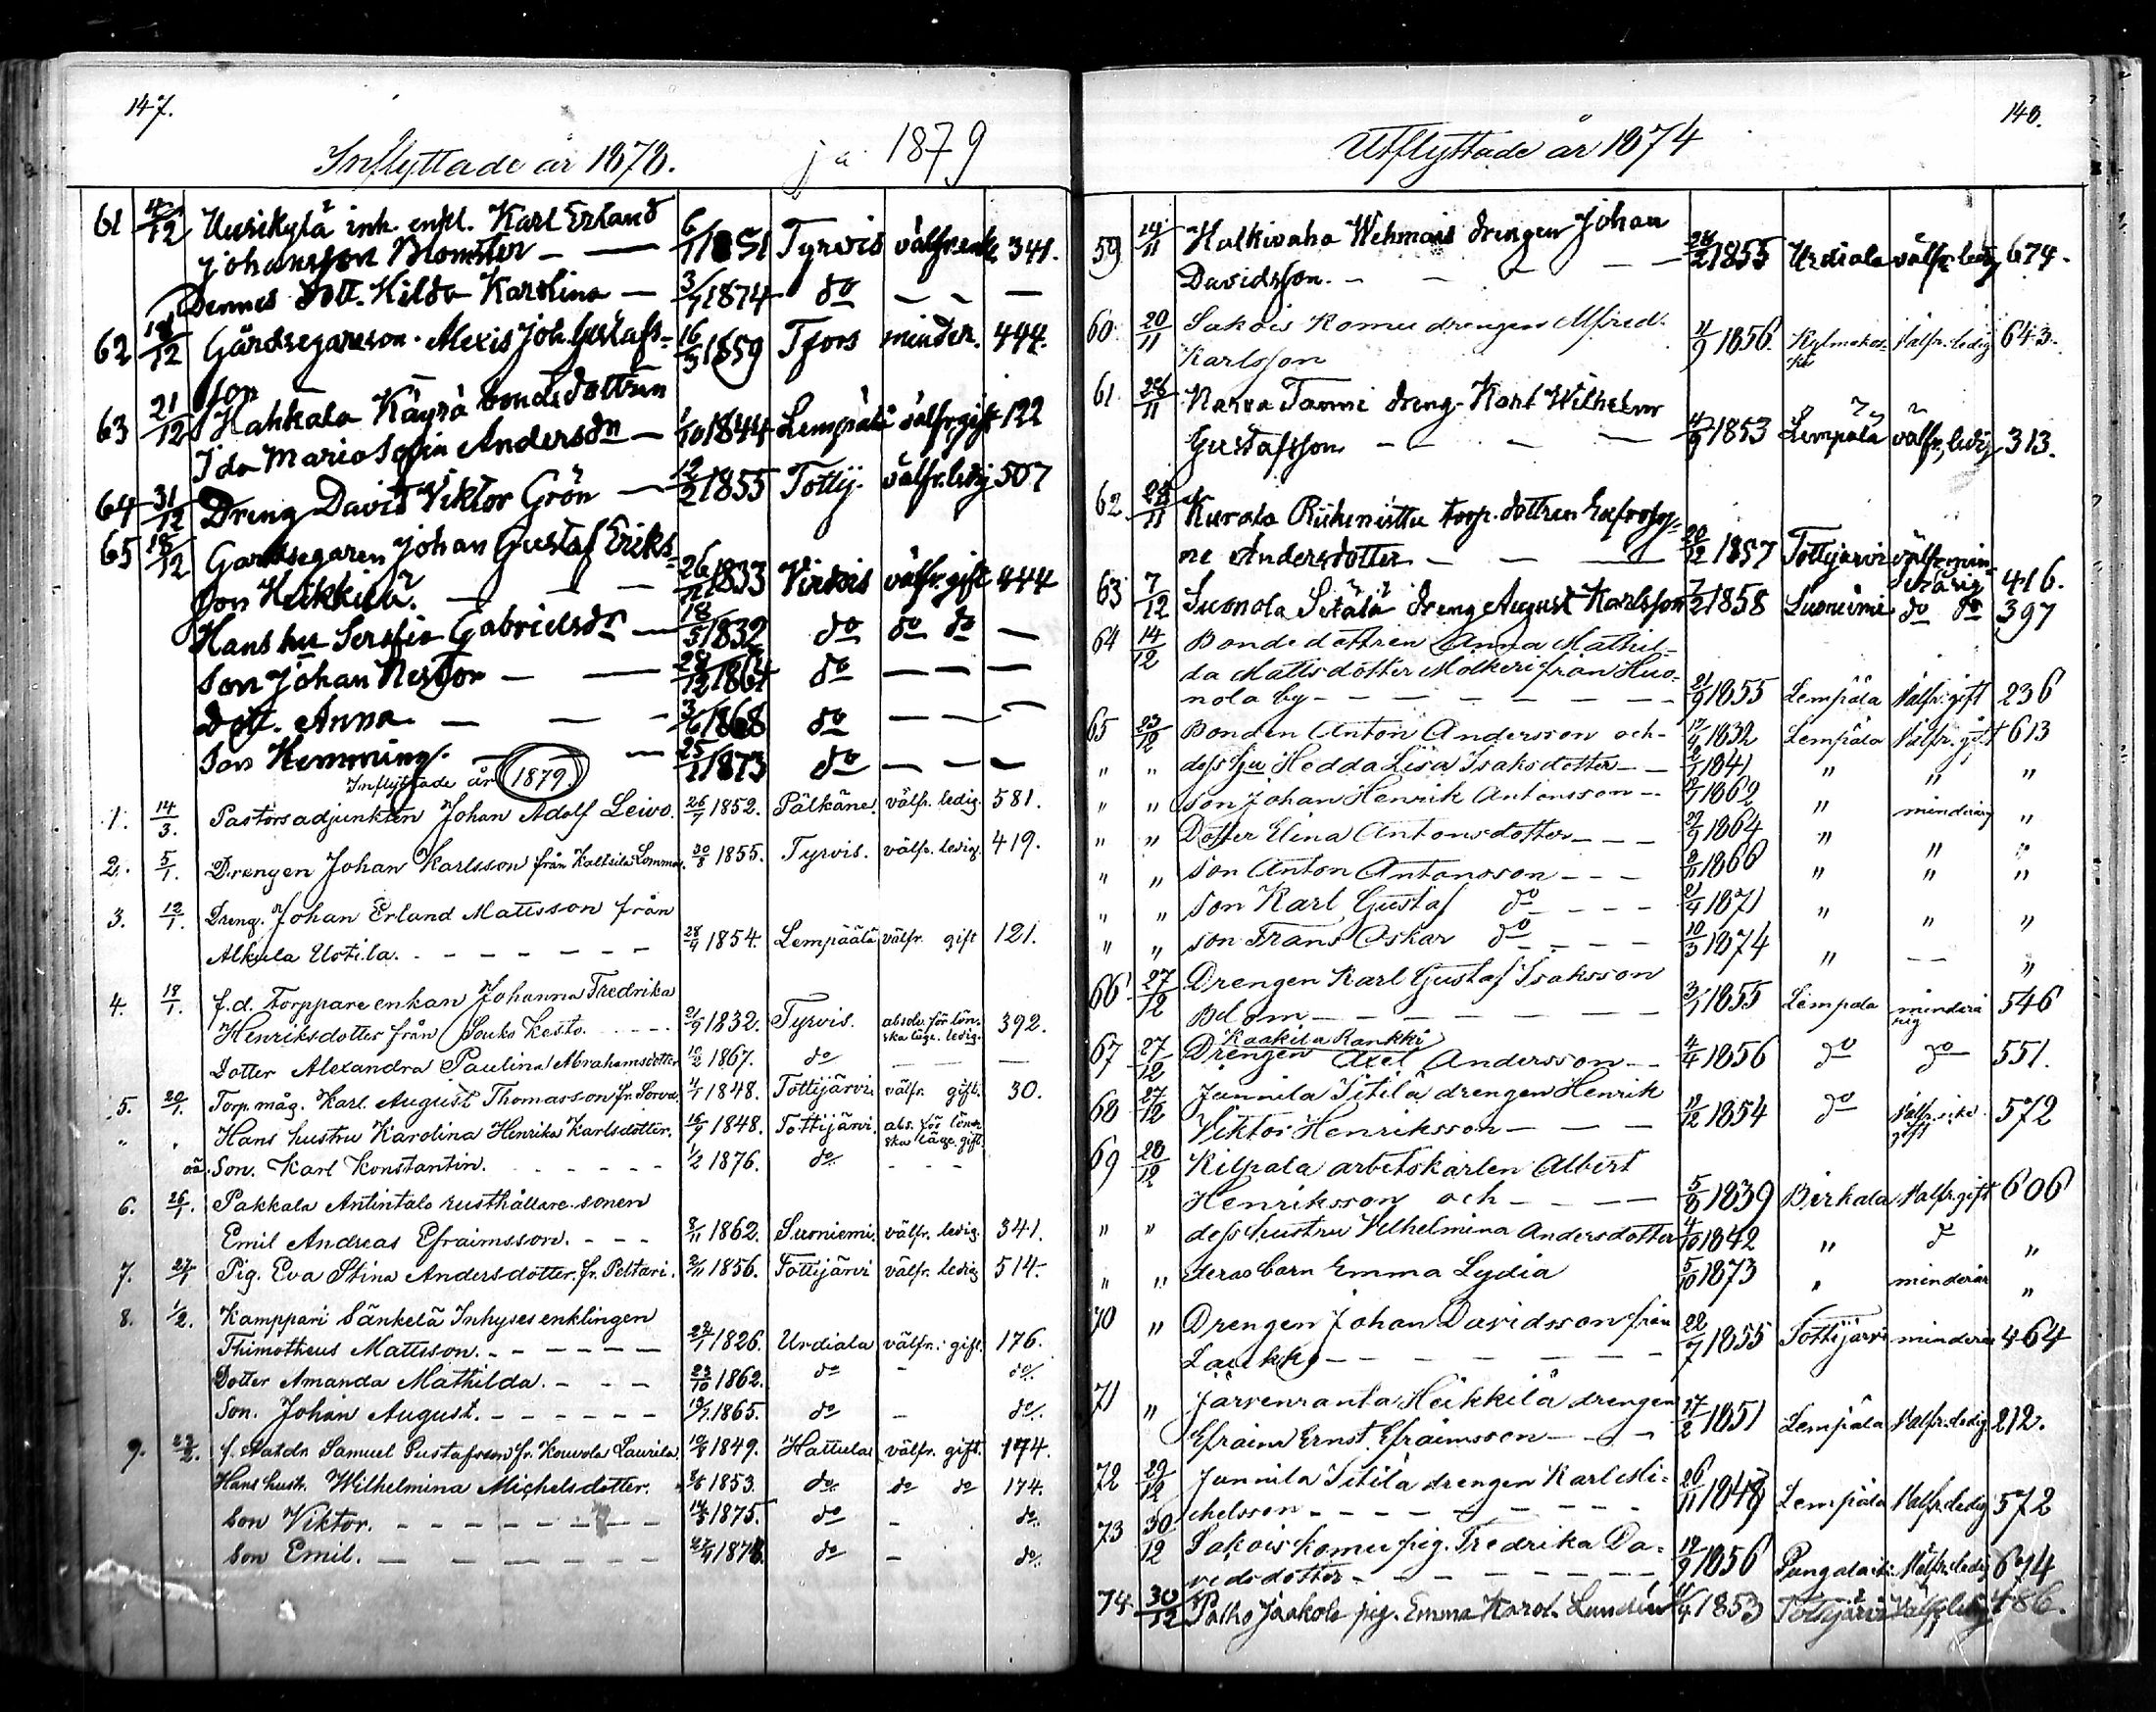 147.
Inflyttade år 1878. ja 1879
61 4/12 Uusikylä inh. enkl. Karl Erland
Johansson Blomster — 6/11 1851 Tyrvis välfr. enkl. 341.
Dennes dott. Hilda Karolina — 3/7 1874 do — — —
62 18/12 Gärdsegareson Alexis Joh. Gustafs- 16/3 1859 Tfors minder. 444.
son
63 21/12 Hahkala Käyrä bondedottren
Ida Maria Sofia Andersdn — 1/10 1844 Lempälä välfr. gift 122
64 31/12 Dreng David Viktor Grön — 12/2 1855 Tottij. välfr. ledig 507
65 18/12 Gardsegaren Johan Gustaf Eriks-
son Heikkilä. — 26/11 1833 Virkis välfr. gift 444
Hans hu Serafia Gabrielsdr — 18/5 1832 do do do —
Son Johan Nestor — 28/12 1864 do — — —
Dott. Anna — 3/6 1868 do — — —
Son Hemming. — 25/11 1873 do — — —
Inflyttade år 1879.
1. 14/3. Pastorsadjunkten Johan Adolf Leivo. 26/7 1852. Pälkäne. välfr. ledig. 581.
2. 5/1. Drengen Johan Karlsson från Kaltsila Lomma. 30/8 1855. Tyrvis. välfr. ledig. 419.
3. 12/1. Dreng. Johan Erland Mattsson från
Alkula Ustila. - - - 28/9 1854. Lempäälä välfr. gift 121.
4. 18/1. f.d. Torppare enkan Johanna Fredrika
Henriksdotter från Souko Kesto. - - - 21/9 1832. Tyrvis. absolv. för lön-
ska läge. ledig. 392.
Dotter Alexandra Paulina Abrahamsdotter 10/2 1867. do — —
5. 20/1. Torp. måg. Karl August Thomasson fr. Sorva. 4/7 1848. Tottijärvi välfr. gift. 30.
" " Hans hustru Karolina Henrika Karlsdotter. 16/9 1848. Tottijärvi. abs. för lön-
ska läge. gift.
oä. Son. Karl Konstantin. - - - 1/2 1876. do - - -
6. 26/1. Pakkala Antintalo rusthållare sonen
Emil Andreas Efraimsson. - - - 8/11 1862. Suoniemi. välfr. ledig. 341.
7. 27/1 Pig. Eva Stina Andersdotter fr. Peltari. 2/11 1856. Tottijärvi välfr. ledig 514.
8. 1/2. Kamppari Sänkelä Inhyses enklingen
Thimotheus Mattsson. - - - 22/1 1826. Urdiala välfr. gift. 176.
Dotter Amanda Mathilda. - - - 23/10 1862. do - do.
Son. Johan August. - - - 19/7 1865. do - do.
9. 23/2. f. Samuel Gustafsson fr. Kouvola Laurila. 10/8 1849. Hattula välfr. gift. 174.
Hans hustr. Wilhelmina Michelsdotter. 1853. do do do 174.
Son Viktor. - - - 14/3 1875. do - do.
Son Emil. - - - 27/4 1878. do - do.
148.
Utflyttade år 1874
59 14/11 Halkivaha Wehmais drengen Johan
Davidsson. - - - 28/2 1855 Urdiala välfr. ledig 674.
60 20/11 Sakois Komu drengen Alfred
Karlsson 4/9 1856. Kylmäkos-
ki Välfr. ledig 643.
61 26/11 Narva Tanni dreng. Karl Wilhelm
Gustafsson - - - 4/9 1853 Lempälä välfr. ledig 313.
62 28/11 Kurala Riihiniittu torp. dottren Eufrosy-
ne Andersdotter - - - 20/12 1857 Tottijärvi välfr. min-
derårig 416.
63 7/12 Suonola Sitälä dreng August Karlsson 7/2 1858 Suoniemi do do 397
64 14/12 Bondedottren Anna Mathil-
da Mattsdotter Molkeri från Huo-
nola by - - - 21/9 1855 Lempäla Välfr. gift 236
65 23/12 Bonden Anton Andersson och - 17/4 1832 Lempäla Välfr. gift 613
" " dess hu Hedda Lisa Isaksdotter - - 2/1 1841 " " "
" " son Johan Henrik Antonsson - 12/7 1862 " minderårig "
" " Dotter Elina Antonsdotter - - - 22/9 1864 " " "
" " son Anton Antonsson - - - 8/8 1866 " " "
" " son Karl Gustaf do - - - 21/4 1871 " " "
" " son Frans Oskar do - - - 10/3 1874 " -- "
66 27/12 Drengen Karl Gustaf Isaksson
Belom - - - 3/1 1855 Lempala minderå
rig 546
67 27/12 Kaakila Rankki
Drengen Axel Andersson - - 4/4 1856 do do 551.
68 27/12 Junnila Sitilä drengen Henrik
Viktor Henriksson - - - 12/12 1854 do Välfr. icke
gift 572
69 28/12 Kilpala arbetskarlen Albert
Henriksson och - - - 5/8 1839 Birkala Välfr. gift 606
" " dess hustru Wilhelmina Andersdotter 4/10 1842 " do "
" " deras barn Emma Lydia 5/10 1873 " minderår "
70 " Drengen Johan Davidsson från
Laukko - - - 22/7 1855 Tottijärvi minderår 464
71 " Järvenranta Heikkilä drengen
Efraim Ernst Efraimsson - - - 27/2 1851 Lempäla Välfr. ledig. 212.
72 29/12 Junnila Sitilä drengen Karl Mi-
chelsson - - - 26/11 1848 Lempäla Välfr. ledig 572
73 30/12 Sakois Komu pig. Fredrika Da-
vidsdotter - - - 12/9 1856 Pungalaiti. Välfr. ledig 674
74 30/12 Palho Jaakola pig. Emma Karol. Lundén 11/4 1853 Tottijärvi Välfr. ledig 486.